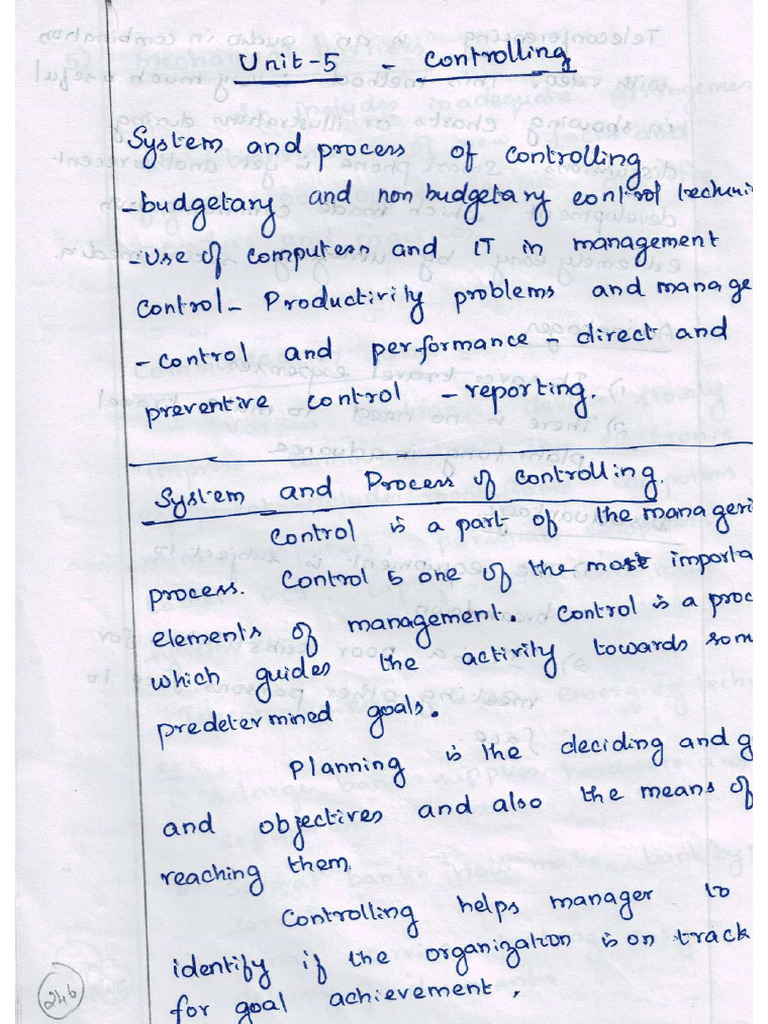 Unit-5 - Controlling
System and process of controlling
-budgetary and non budgetary control techni
-Use of computers and IT in management
control- Productivity problems and manage
-control and performance - direct and
preventive control - reporting.
System and Process of controlling.
Control is a part of the manageri
process. Control is one of the most importa
elements of management. Control is a proc
which guides the activity towards som
predetermined goals.
Planning is the deciding and g
and objectives and also the means of
reaching them.
Controlling helps manager to
identify if the organization is on track
for goal achievement.
246